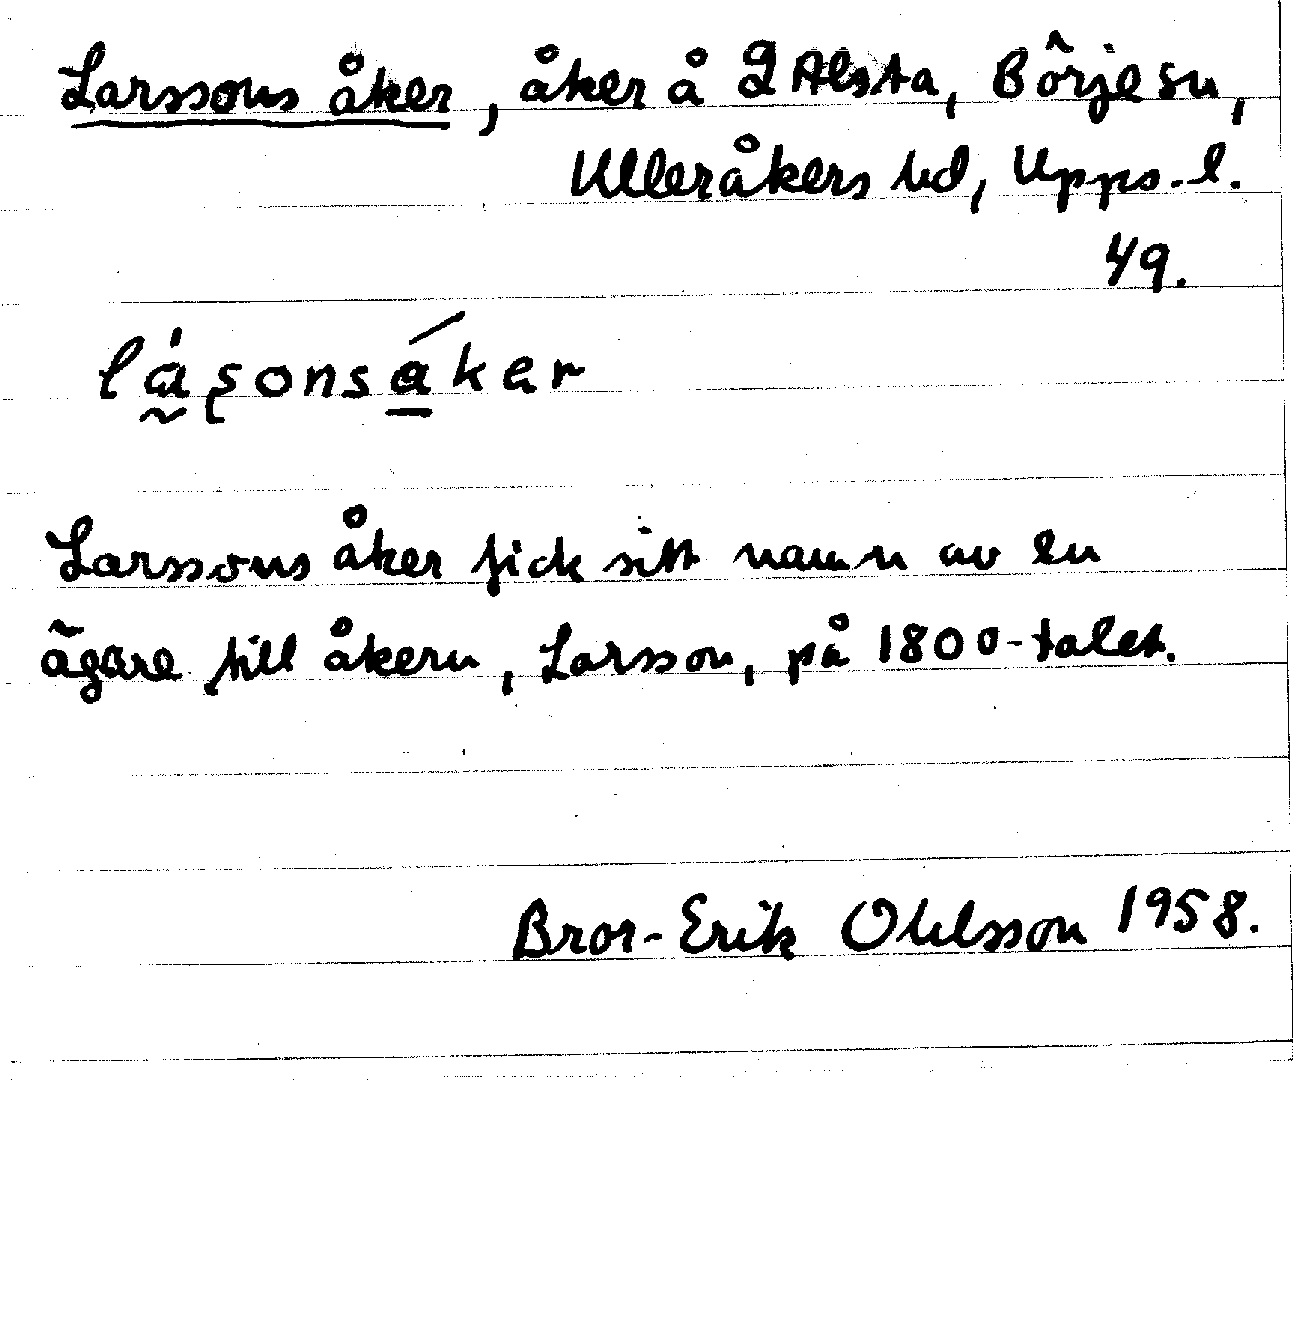 Larssons åker, åker å 2 Alsta, Börje sn,
Ulleråkers hd, Upps. l.
49.
lásonsáker
Larssons åker fick sitt namn av en
ägare till åkern, Larsson, på 1800-talet.
Bror-Erik Ohlsson 1958.